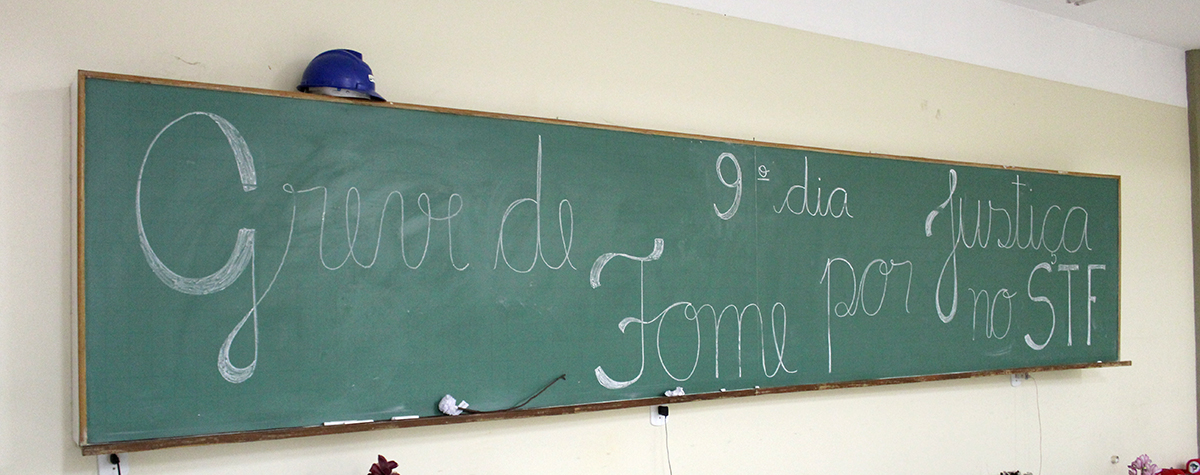 Greve de
Fome
9º dia
por
Justiça
no STF